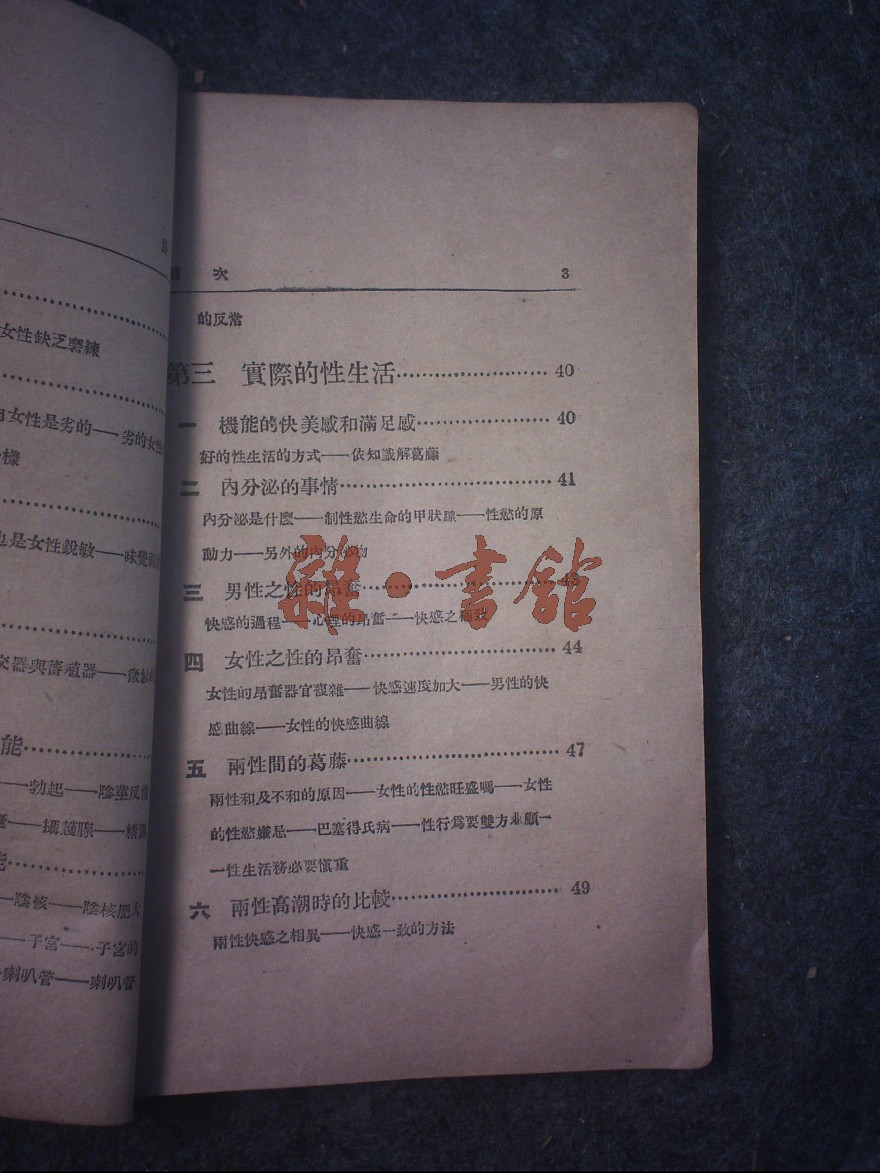 目 次 3
的反常
第三 實際的性生活 40
一 機能的快美感和滿足感 40
好的性生活的方式——依知識解葛藤
二 內分泌的事情 41
內分泌是什麼——制性慾生命的甲狀腺——性慾的原
動力——另外的內分泌物
三 男性之性的昂奮 43
快感的過程——心理的昂奮——快感之極致
四 女性之性的昂奮 44
女性的昂奮器官複雜——快感速度加大——男性的快
感曲線——女性的快感曲線
五 兩性間的葛藤 47
兩性和及不和的原因——女性的性慾旺盛嗎——女性
的性慾嫌忌——巴塞得氏病——性行爲要雙方兼顧—
—性生活務必要愼重
六 兩性高潮時的比較 49
兩性快感之相異——快感一致的方法
雜·書館
女性缺乏磨練
女性是劣的——劣的女性
樣
也是女性銳敏——味覺
交器與
能
——勃起——陰莖反常
攝護腺——精
陰核——陰核肥大
——子宮——子宮的
喇叭管——喇叭管